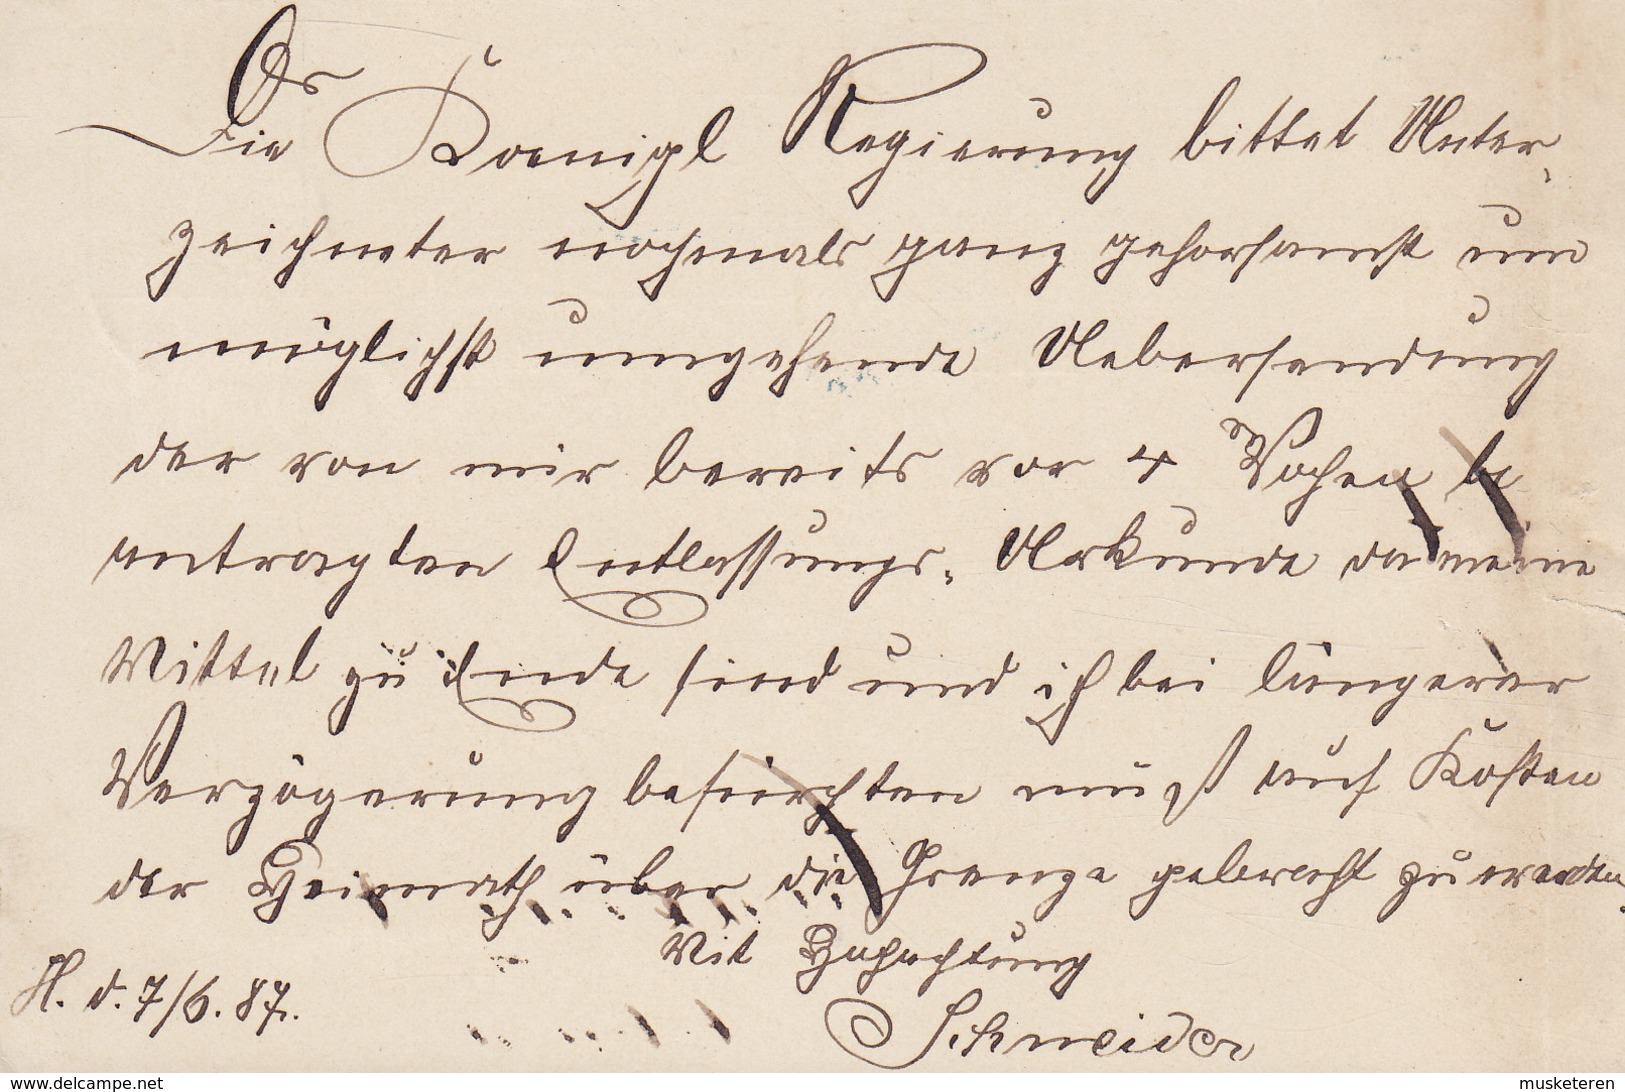 Die Koenigl Regierung bittet Unter-
zeichneter nochmals ganz gehorsamst um
möglichst umgehende Uebersendung
der von mir bereits vor 4 Wochen be
antragten Entlassungs-Urkunde da meine
Mittel zu Ende sind und ich bei längerer
Verzögerung befürchten muß auf Kosten
der Heimath über die Grenze gebracht zu werden.
Mit Hochachtung
H. d. 7/6. 87.
Schneider
www.delcampe.net
musketeren